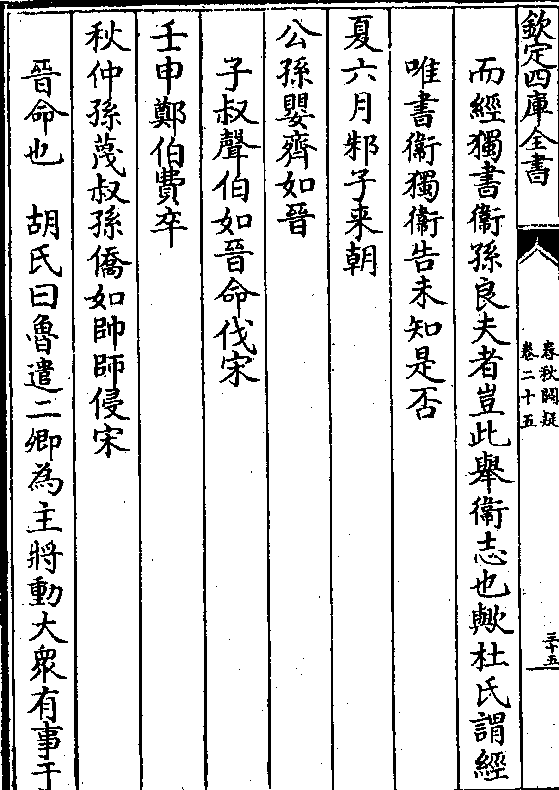 欽定四庫全書
春秋闕疑
卷二十五
三十五
而經獨書衞孫良夫者豈此舉衞志也歟杜氏謂經
唯書衞獨衞告未知是否
夏六月邾子来朝
公孫嬰齊如晉
子叔聲伯如晉命伐宋
壬申鄭伯費卒
秋仲孫蔑叔孫僑如帥師侵宋
晉命也　胡氏曰魯遣二卿為主將動大衆有事于